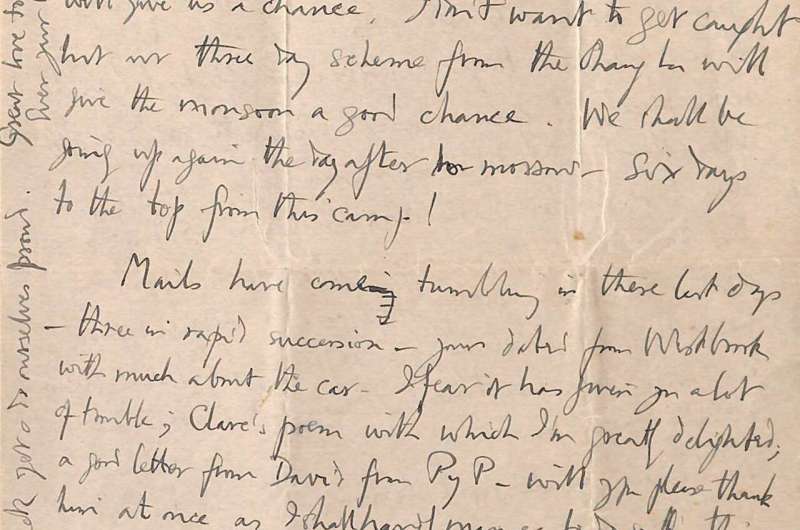 will give us a chance. I don't want to get caught
but our three day scheme from the Chang La will
give the monsoon a good chance. We shall be
going up again the day after to morrow – Six days
to the top from this camp!
Mails have come tumbling in these last days
– three in rapid succession – yours dated from Westbrook
with much about the car – I fear it has given you a lot
of trouble; Clare's poem with which I'm greatly delighted;
a good letter from David from PyP – will you please thank
him at once as I shall hardly manage to do
Great love to
ever your
to ourselves proud.